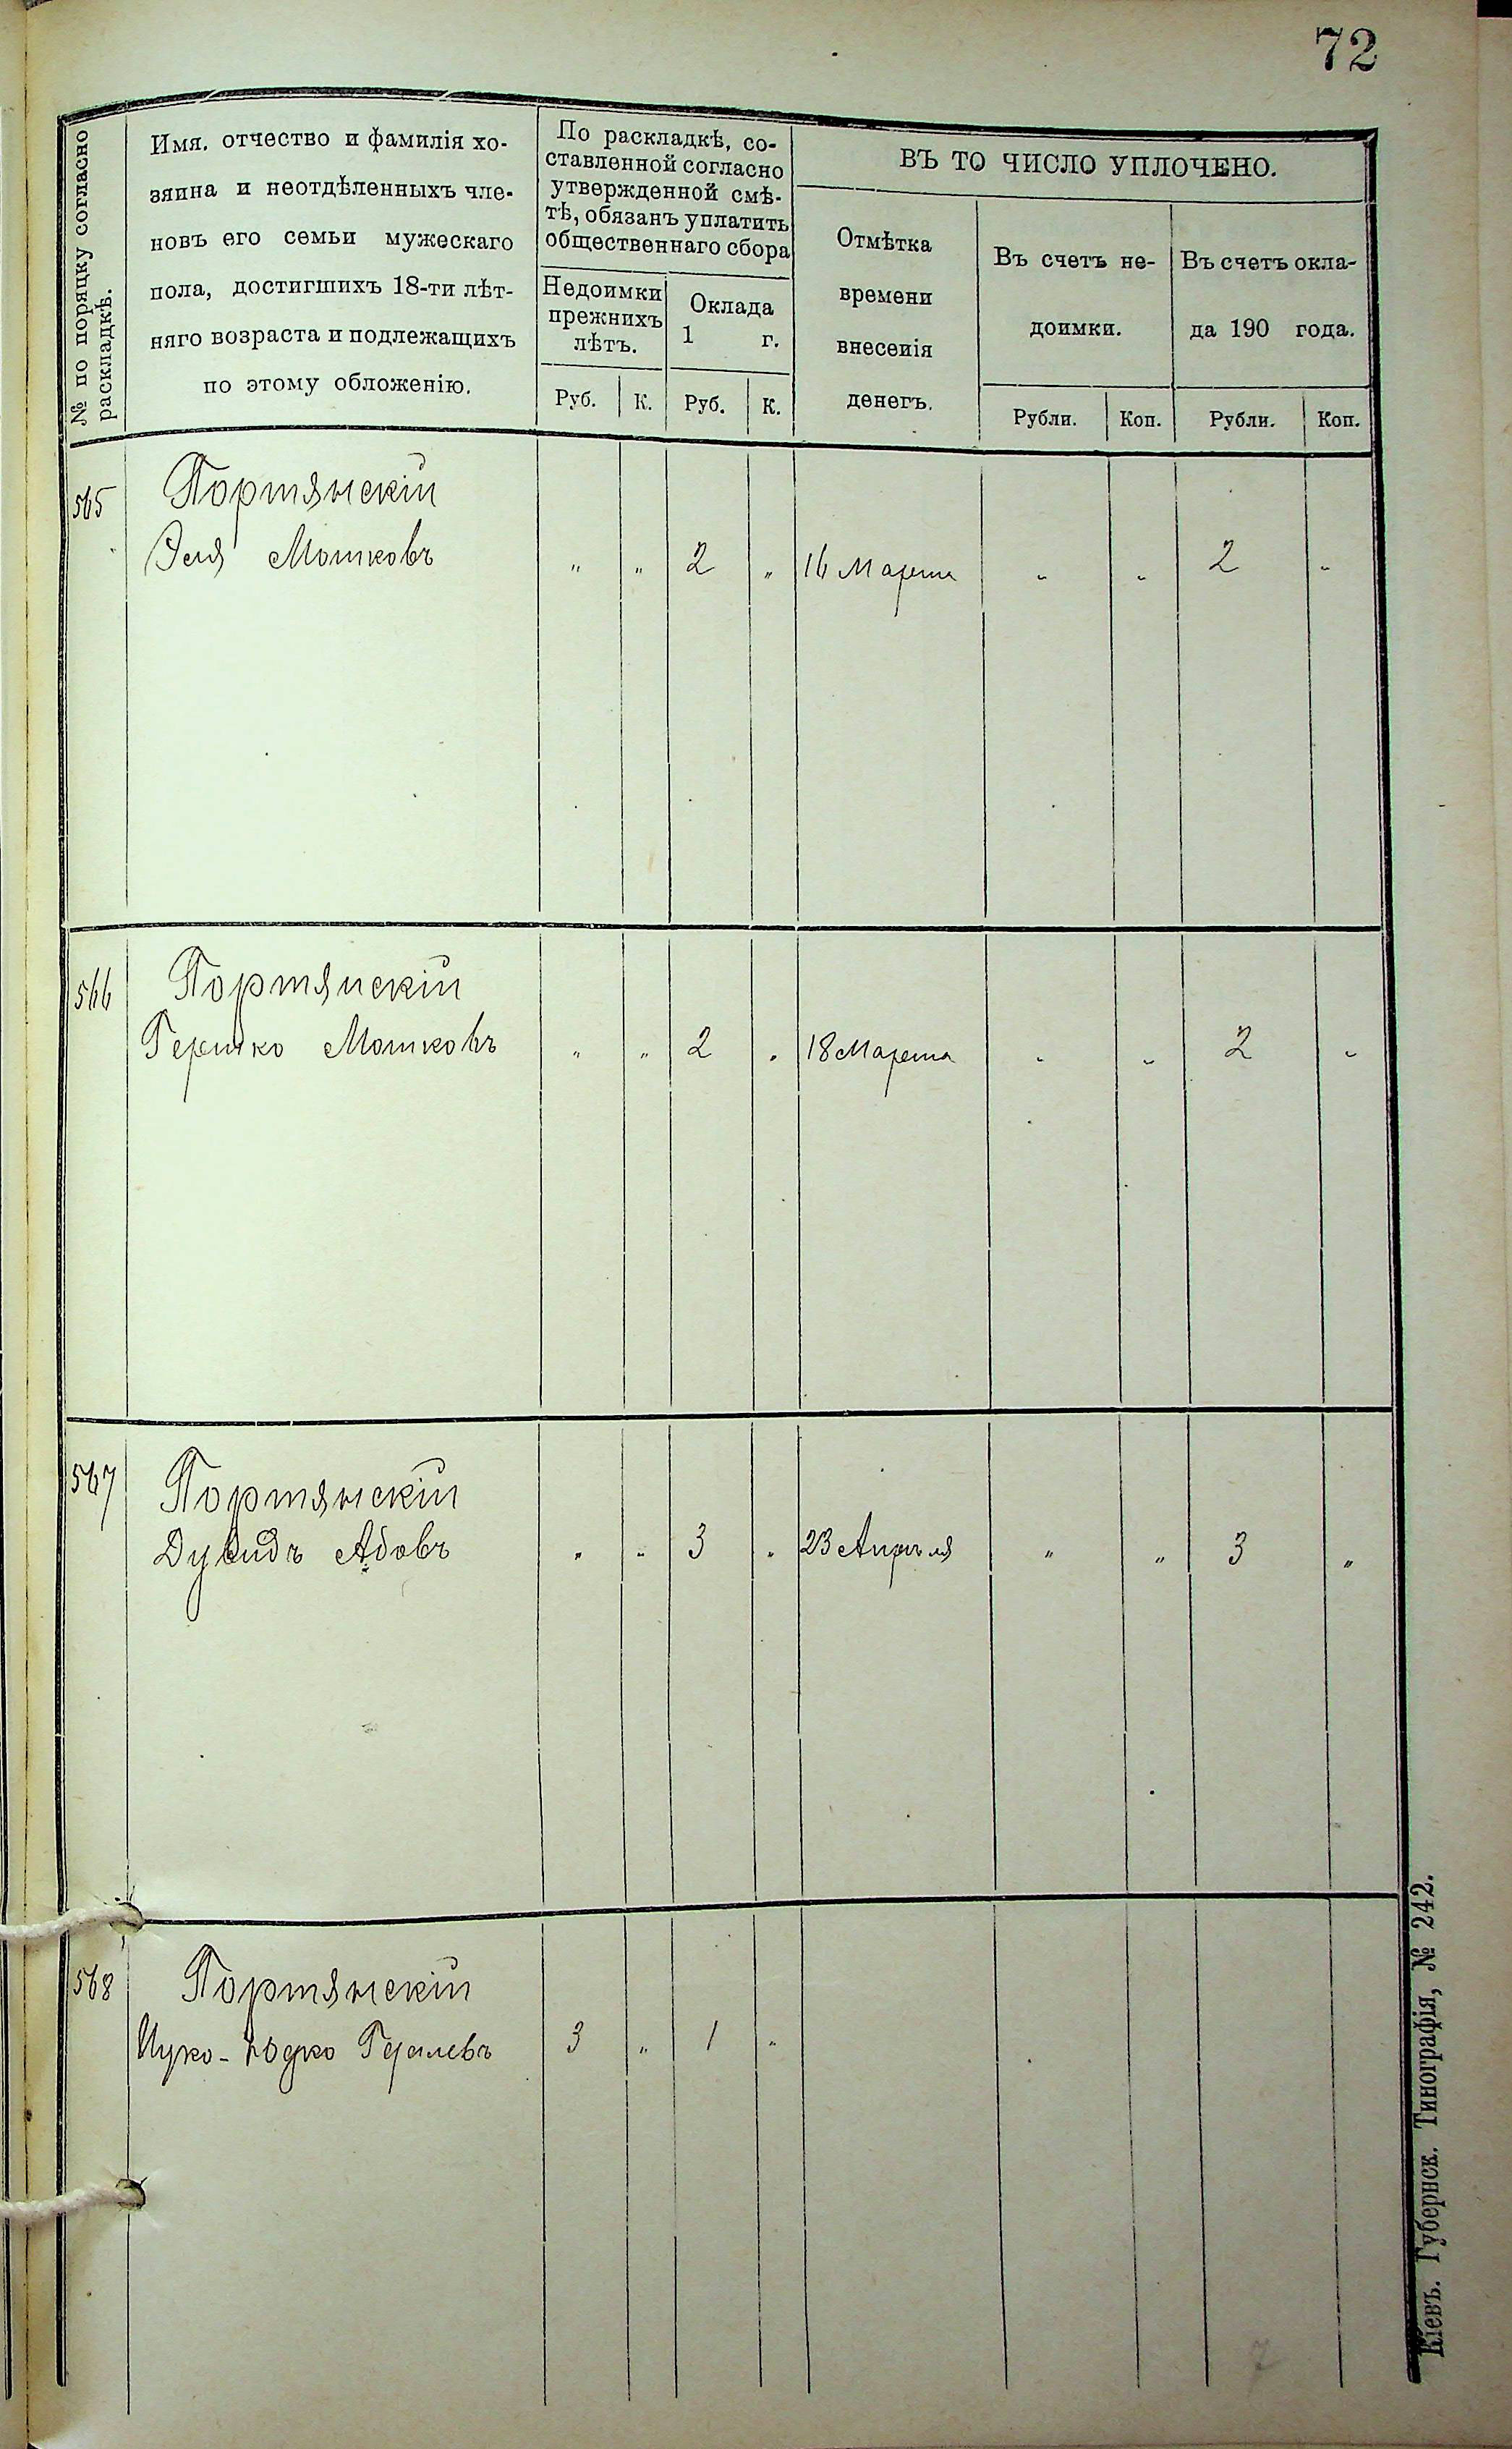 72
№ по порядку согласно
раскладкѣ.
Имя, отчество и фамилія хо-
зяина и неотдѣленныхъ чле-
новъ его семьи мужескаго
пола, достигшихъ 18-ти лѣт-
няго возраста и подлежащихъ
по этому обложенію.
По раскладкѣ, со-
ставленной согласно
утвержденной смѣ-
тѣ, обязанъ уплатить
общественнаго сбора
Недоимки
прежнихъ
лѣтъ.
Оклада
1 г.
Руб. К. Руб. К.
ВЪ ТО ЧИСЛО УПЛОЧЕНО.
Отмѣтка
времени
внесенія
денегъ.
Въ счетъ не-
доимки.
Въ счетъ окла-
да 190 года.
Рубли. Коп. Рубли. Коп.
565 Портянскій
Эля Мошковъ " " 2 " 16 Марта " " 2 "
566 Портянскій
Гершко Мошковъ " " 2 " 18 Марта " " 2 "
567 Портянскій
Дувидъ Абовъ " " 3 " 23 Апрѣля " " 3 "
568 Портянскій
Ицко- 3 " 1 "
Кіевъ. Губернск. Типографія, № 242.